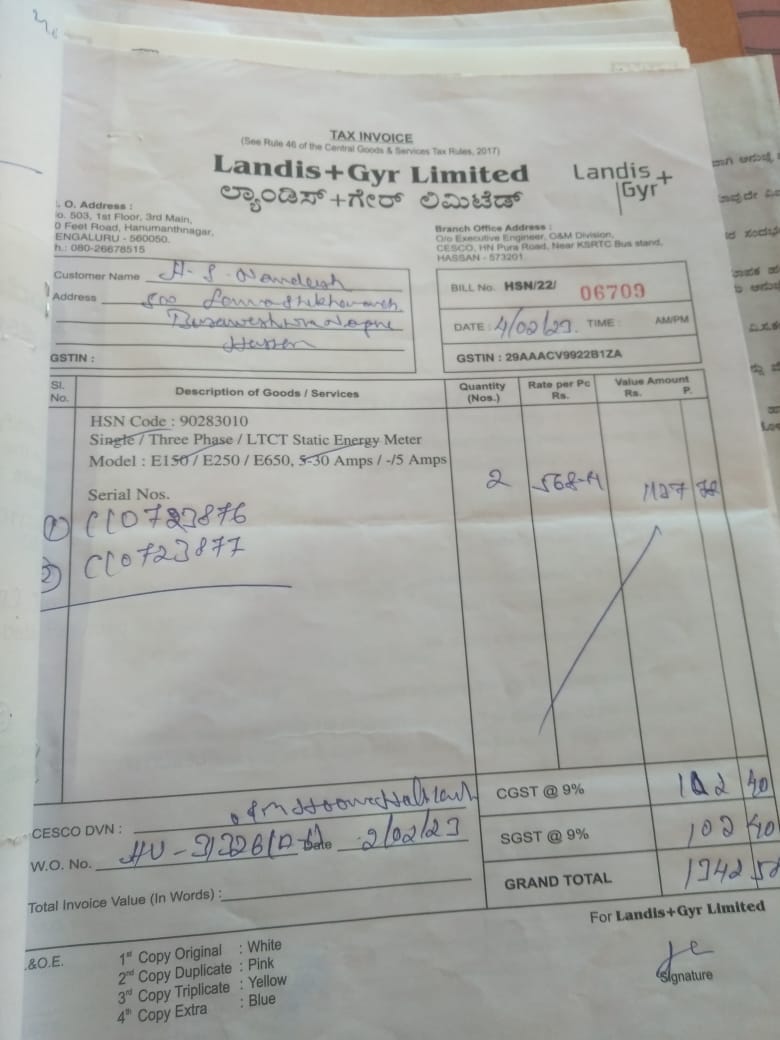 TAX INVOICE
(See Rule 46 of the Central Goods & Services Tax Rules, 2017)
Landis+Gyr Limited
ಲ್ಯಾಂಡಿಸ್+ಗೇರ್ ಲಿಮಿಟೆಡ್
Landis+
Gyr
. O. Address :
o. 503, 1st Floor, 3rd Main,
0 Feet Road, Hanumanthnagar,
ENGALURU - 560050.
h.: 080-26678515
Branch Office Address :
O/o Executive Engineer, O&M Division,
CESCO, HN Pura Road, Near KSRTC Bus stand,
HASSAN - 573201.
Customer Name H-S-
Address
Hassan
GSTIN :
BILL No. HSN/22/ 06709
DATE : 4/02/23. TIME : AM/PM
GSTIN : 29AAACV9922B1ZA
Sl. No. Description of Goods / Services Quantity (Nos.) Rate per Pc Rs. Value Amount Rs. P.
HSN Code : 90283010
Single / Three Phase / LTCT Static Energy Meter
Model : E150 / E250 / E650, 5-30 Amps / -/5 Amps
2 1137 78
Serial Nos.
1) CC0723876
2) CC0723877
CGST @ 9% 102 40
SGST @ 9% 102 40
GRAND TOTAL 1342 58
CESCO DVN :
W.O. No. Date 2/02/23
Total Invoice Value (In Words) :
For Landis+Gyr Limited
Signature
.&O.E.
1st Copy Original : White
2nd Copy Duplicate : Pink
3rd Copy Triplicate : Yellow
4th Copy Extra : Blue